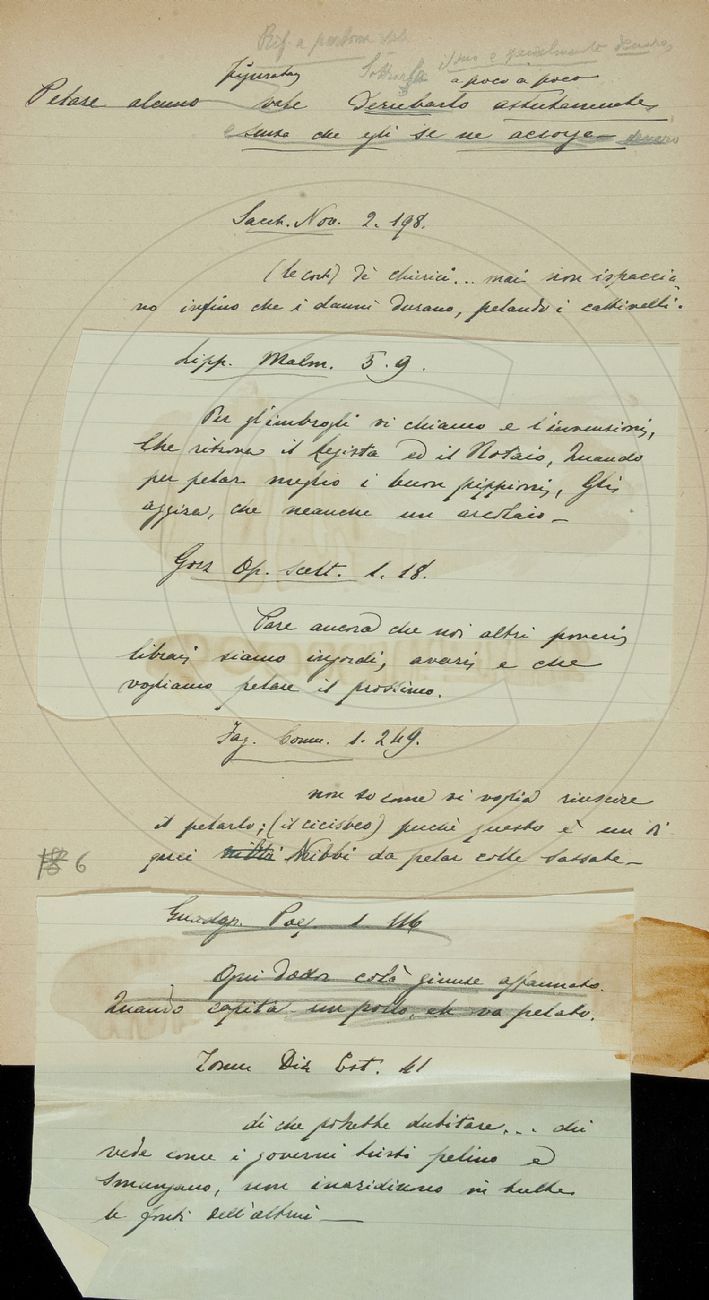 Rif. a persona
Sottrarga il suo e specialmente denaro,
figuratam a poco a poco
Pelare alcuno vale Derubarlo astutamente,
e senza che egli se ne accorga denaro
Sacch. Nov. 2. 198.
(le corti) di chierici... mai non ispaccia
no infino che i danni durano, pelando i cattivelli.
Lipp. Malm. 5. 9.
Per gl'imbrogli vi chiamo e l'invenzioni,
Che ritrova il Legista ed il Notaio, Quando
per pelar meglio i buon pippioni, Gli
aggira, che neanche un arcolaio —
Gozz. Op. scelt. 1. 18.
Pare ancora che noi altri poveri
librai siamo ingordi, avari e che
vogliamo pelare il prossimo.
Fag. Comm. 1. 249.
non so come vi voglia riuscire
il pelarlo; (il cicisbeo) perchè questo è un di
quei Nibbi da pelar colle sassate —
6
Guadagn. Poes. 1. 116
Ogni dottor colà giunse affannato.
Quando capita un pollo, eh va pelato.
Tomm. Diz. Est. 41
di che potrebbe dubitare... chi
vede come i governi tristi pelino e
smungano, non inaridiscano in tutto
le fonti dell'altrui —